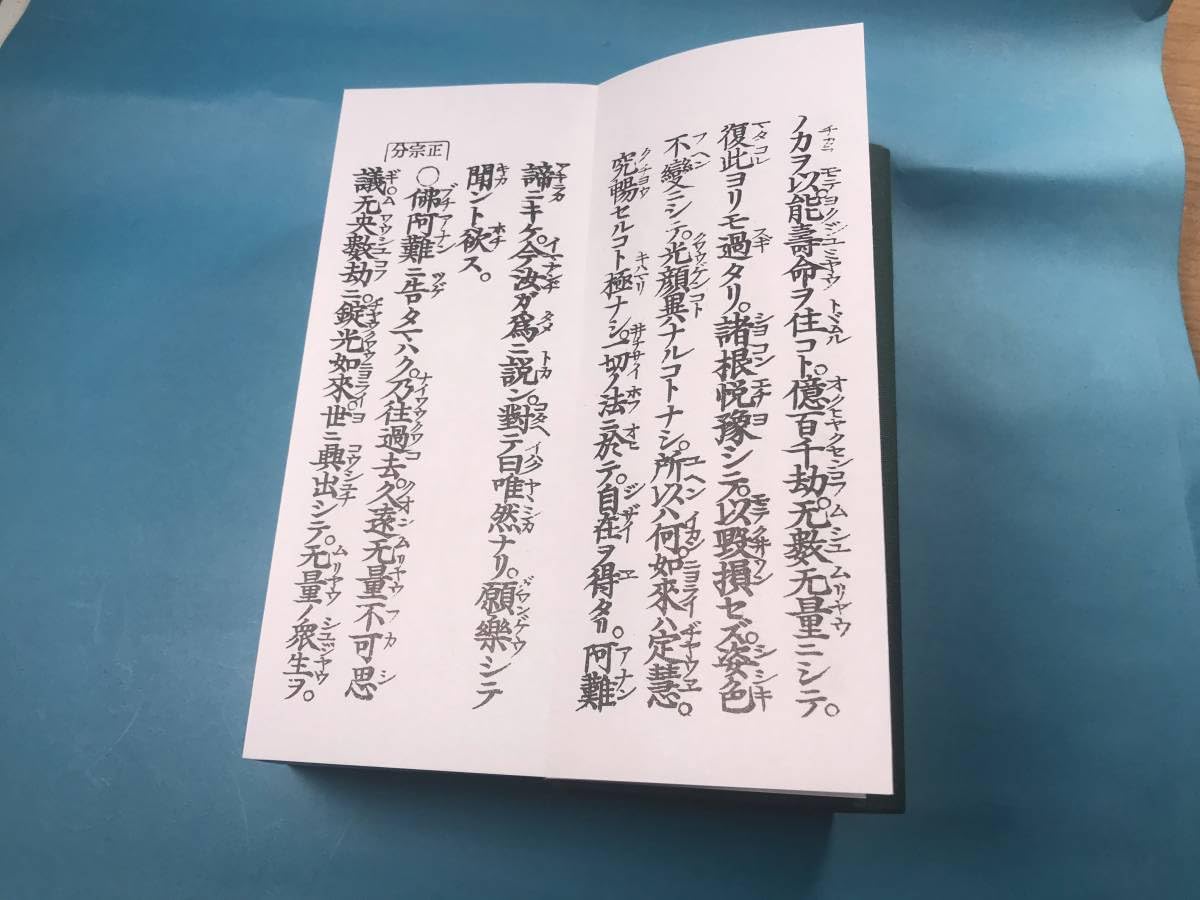 ノ力ヲ以。能壽命ヲ住コト。億百千劫。无數无量ニシテ。
復此ヨリモ過タリ。諸根悦豫シテ。以毀損セズ。姿色
不變ニシテ。光顔異ナルコトナシ。所以ハ何。如來ハ定慧。
究暢セルコト極ナシ。一切ノ法ニ於テ。自在ヲ得タリ。阿難
諦ニキケ。今汝ガ爲ニ説ン。對テ曰唯然ナリ。願樂シテ
聞ント欲ス。
正宗分
○佛阿難ニ告タマハク。乃往過去。久遠无量不可思
議。无央數劫ニ。錠光如來。世ニ興出シテ。无量ノ衆生ヲ。